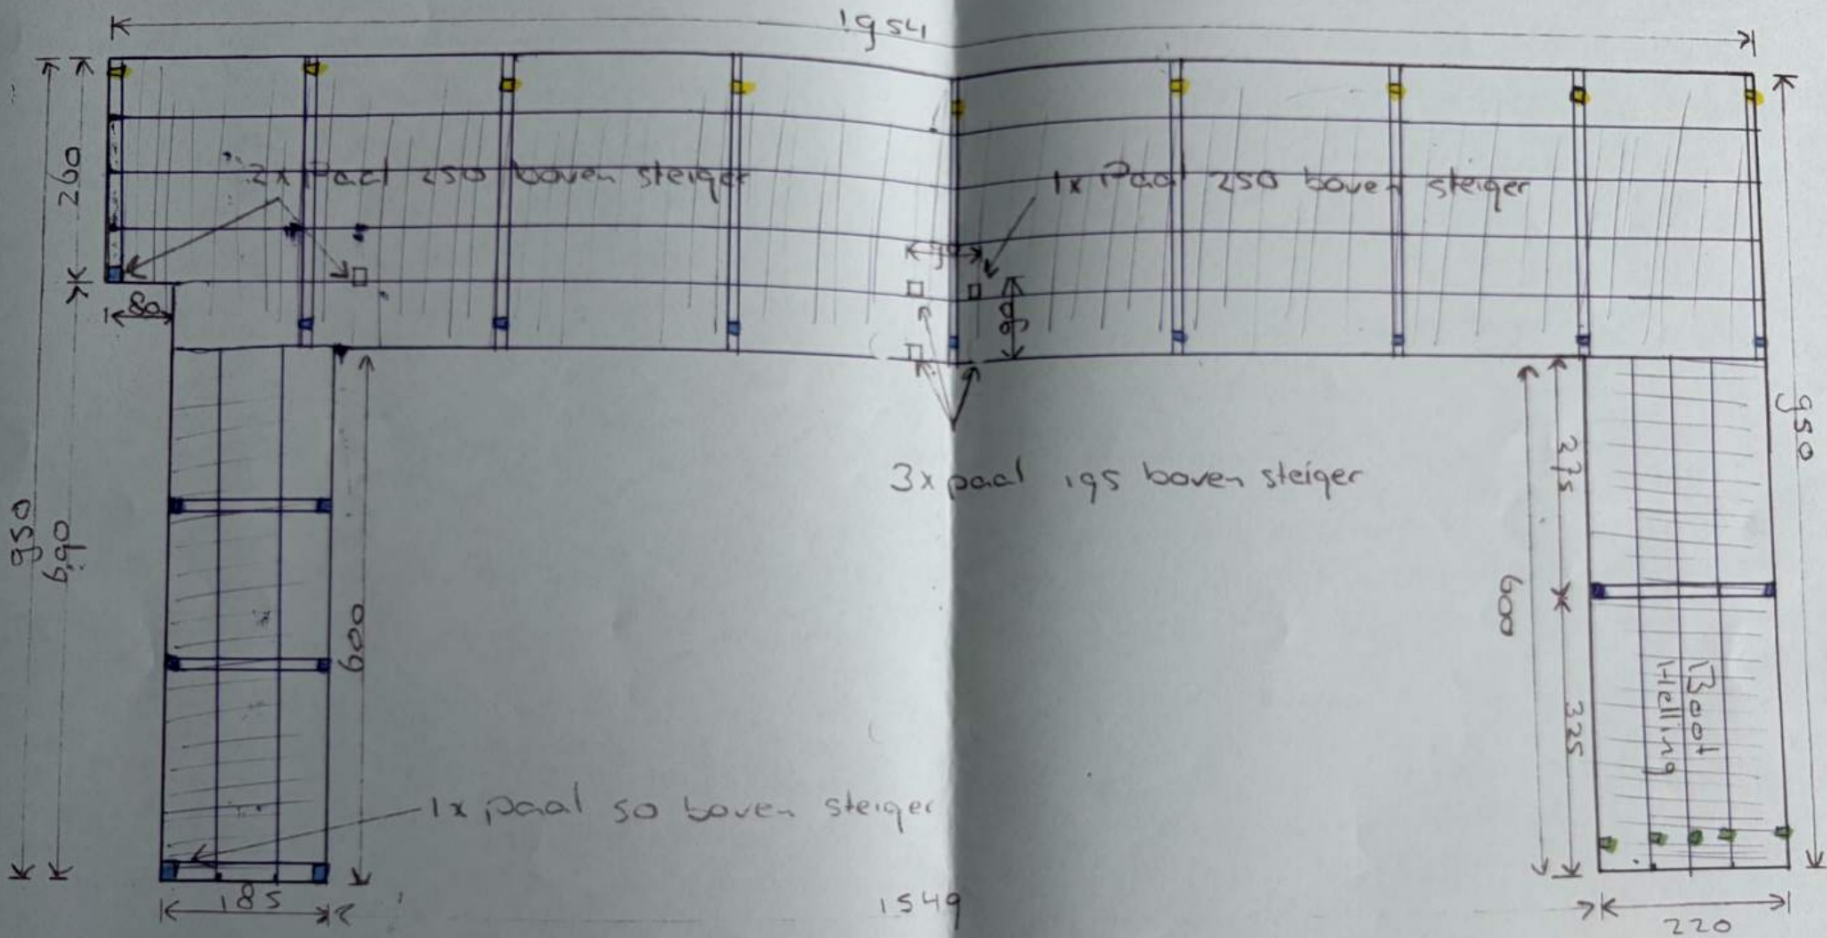 1954
260
2x Paal 250 boven steiger
1x Paal 250 boven steiger
80
90
950
690
3x paal 195 boven steiger
600
275
600
950
325
Boot
Helling
1x paal 50 boven steiger
185
1549
220